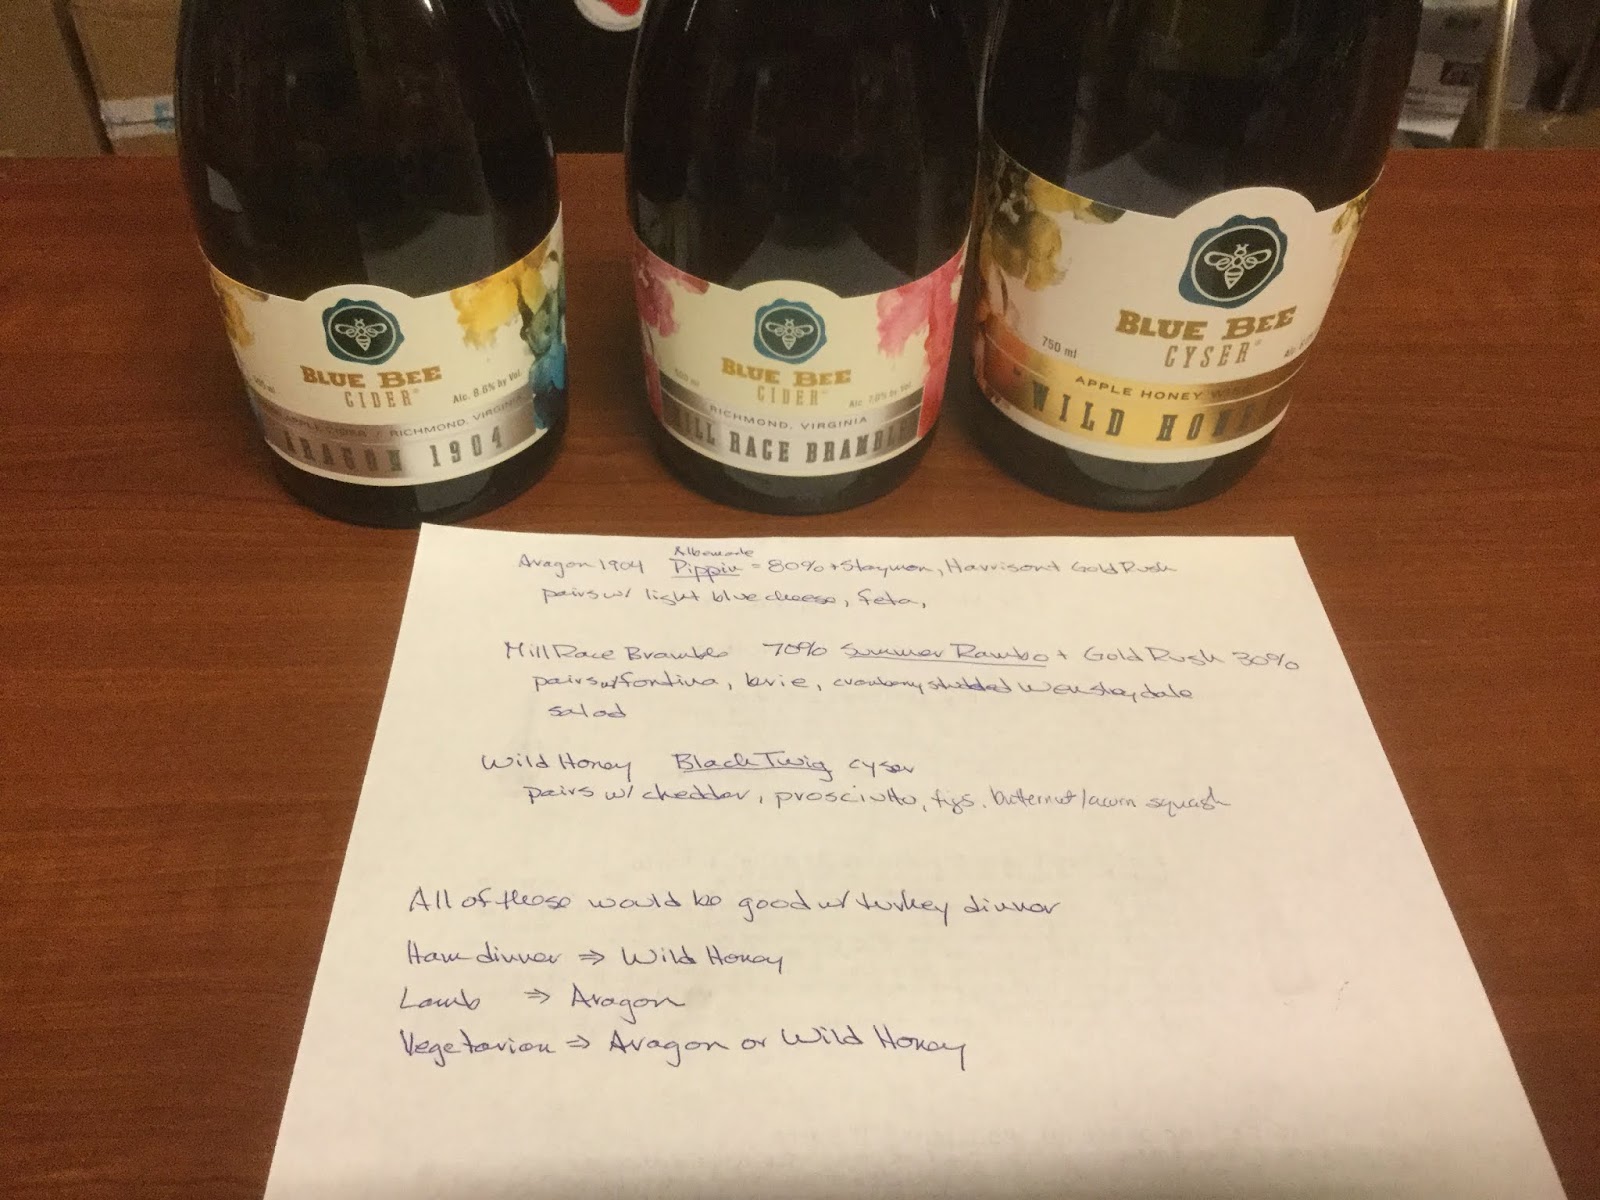 BLUE BEE
CIDER
Alc. 8.6% by Vol.
APPLE CIDER / RICHMOND, VIRGINIA
ARAGON 1904
BLUE BEE
CIDER
500 ml
Alc. 7.0% by Vol.
RICHMOND, VIRGINIA
MILL RACE BRAMBLE
BLUE BEE
CYSER
750 ml
APPLE HONEY
WILD HONEY
Albemarle
Aragon 1904 Pippin = 80% + Stayman, Harrison + GoldRush
pairs w/ light blue cheese, feta,
Mill Race Bramble 70% Summer Rambo + Gold Rush 30%
pairs w/ fontina, brie, cranberry studded Wensleydale
salad
Wild Honey Black Twig cyser
pairs w/ cheddar, prosciutto, figs, butternut/acorn squash
All of these would be good w/ turkey dinner
Ham dinner ⇒ Wild Honey
Lamb ⇒ Aragon
Vegetarian ⇒ Aragon or Wild Honey